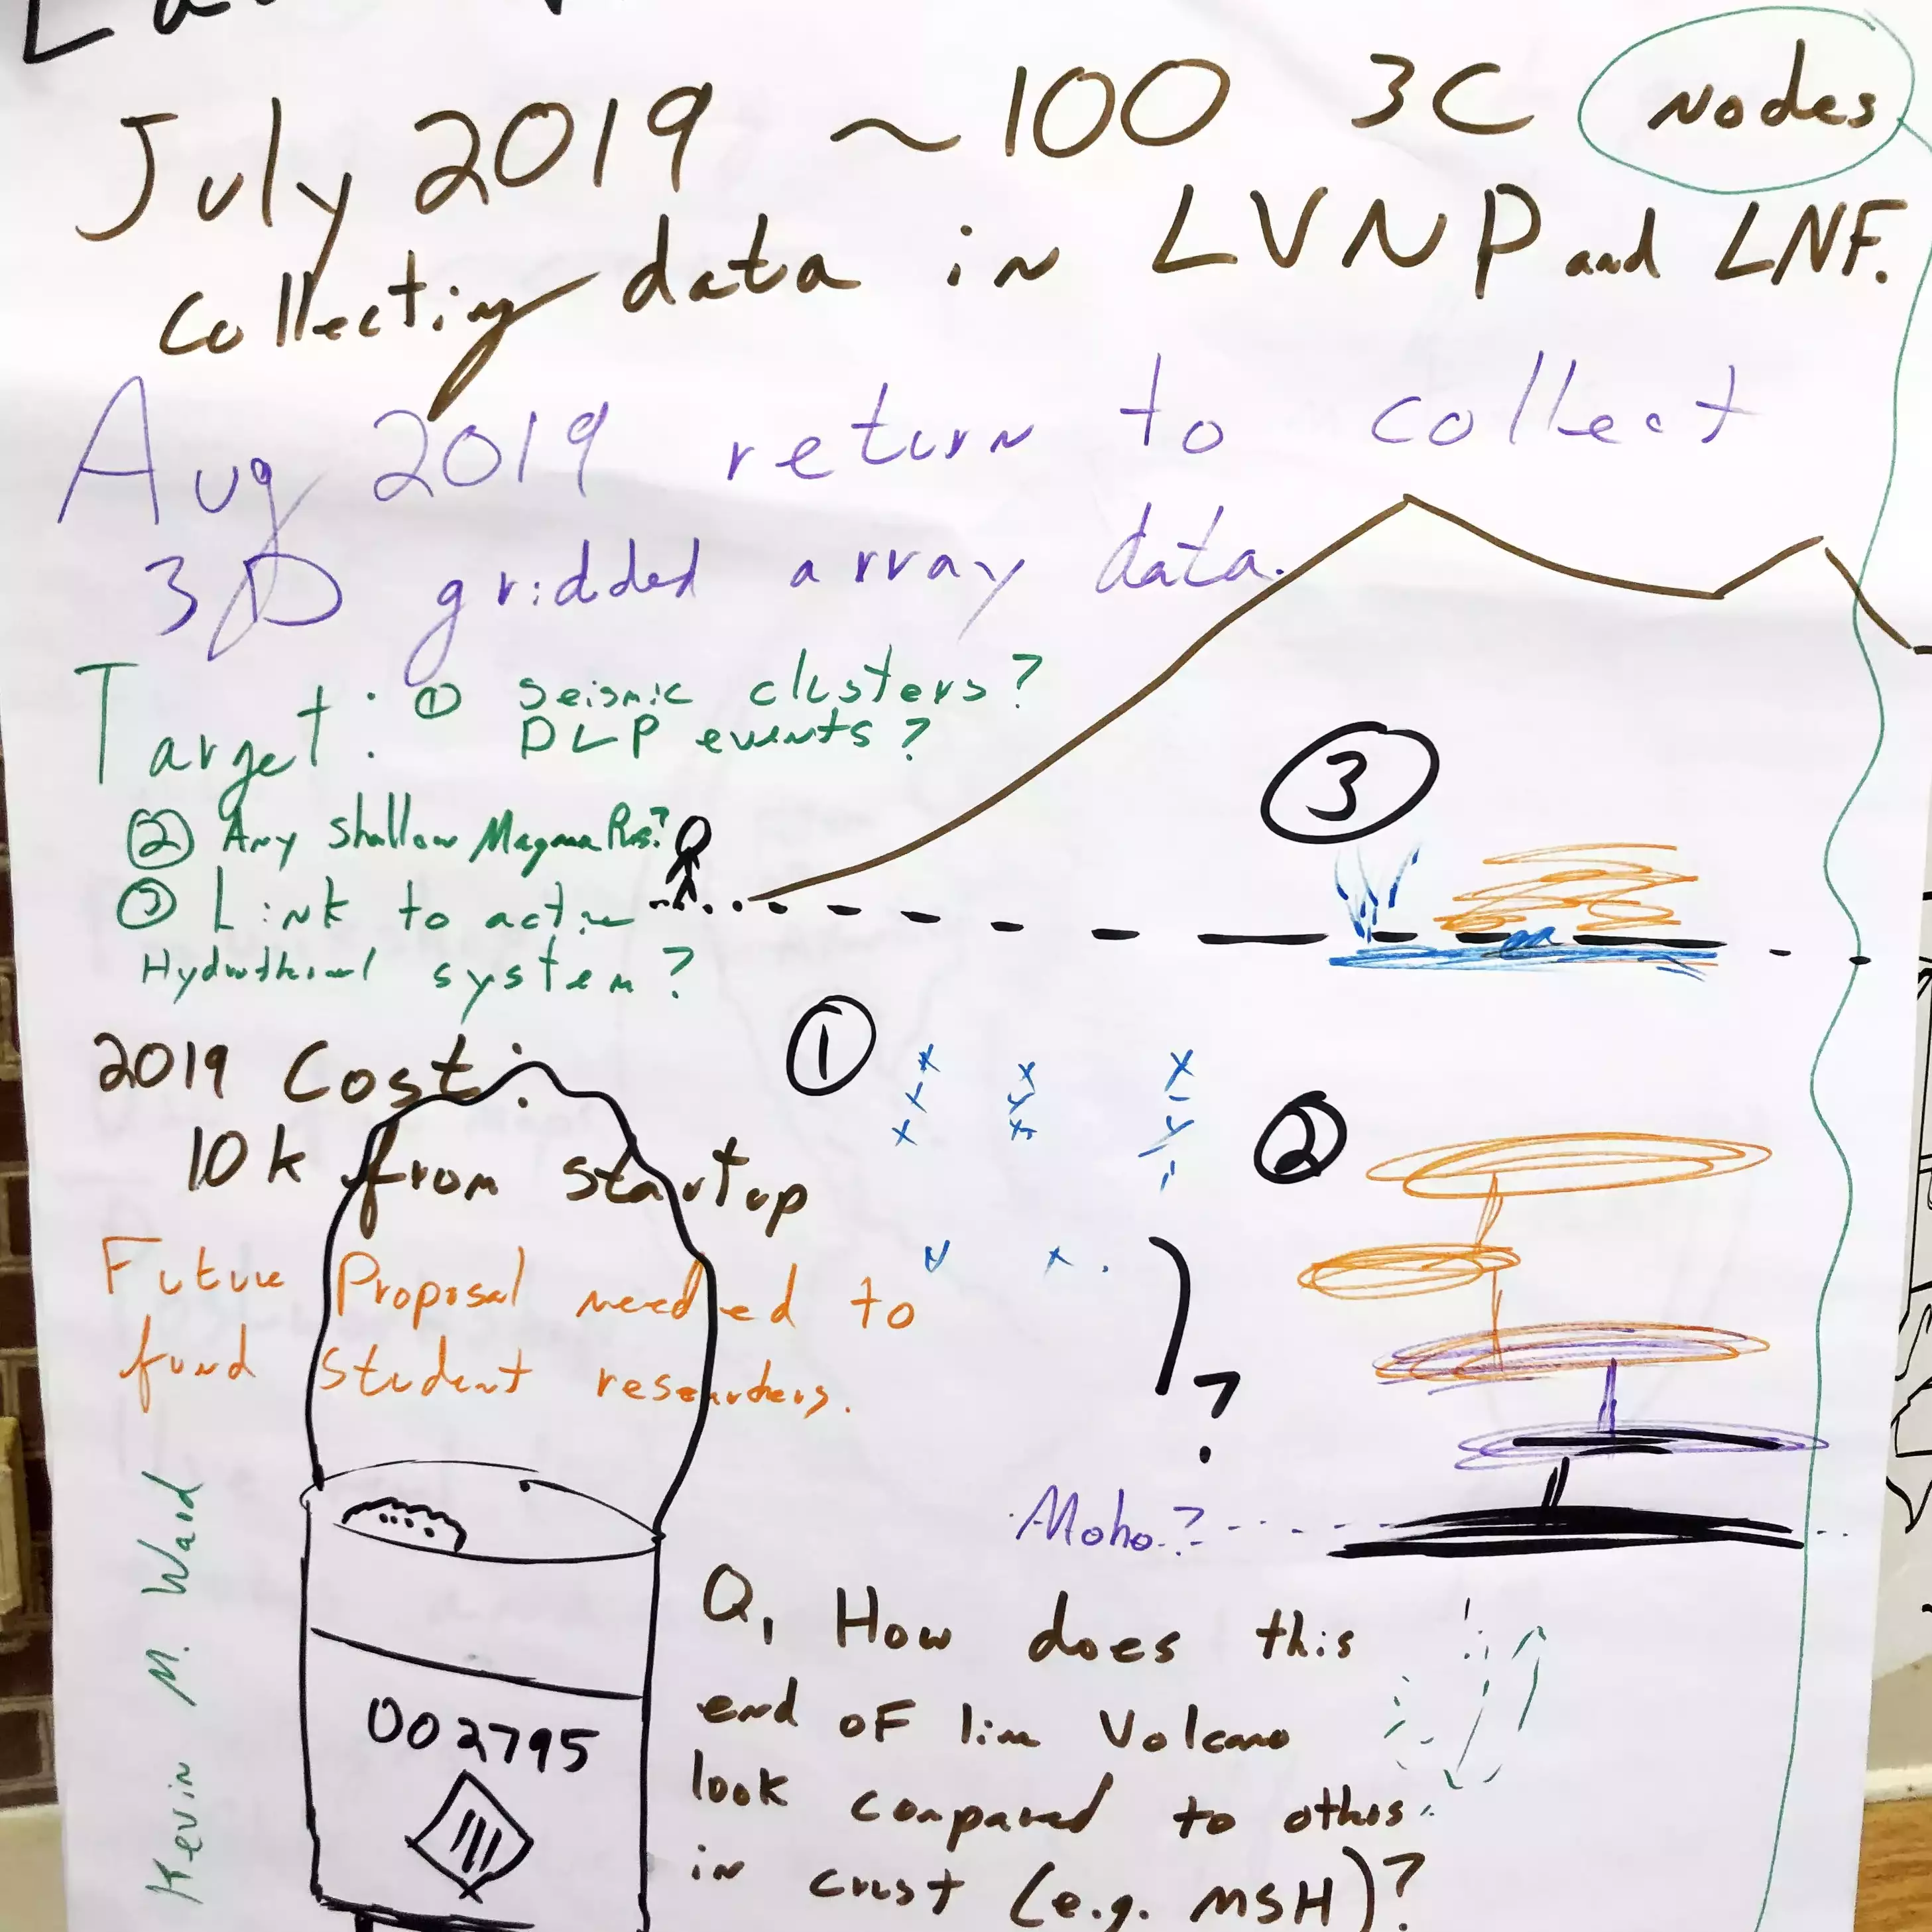 July 2019 ~100 3C Nodes
collecting data in LVNP and LNF.
Aug 2019 return to collect
3D gridded array data.
Target: ① Seismic clusters?
DLP events?
② Any Shallow Magma Res.?
③ Link to active
Hydrothermal system?
③
①
②
2019 Cost:
10k from startup
Future Proposal needed to
fund student researchers.
?
Moho?
Kevin M. Ward
002795
Q, How does this
end of line Volcano
look compared to others
in crust (e.g. MSH)?